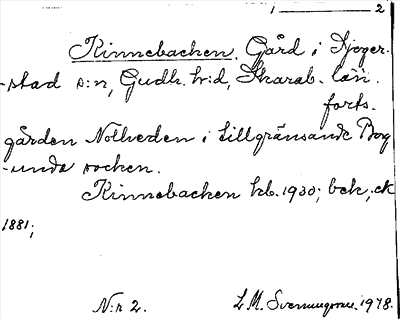 1 ——— 2
Kinnebacken. Gård i Fjoger-
-stad s:n, Gudh. h:d, Skarab. län.
forts.
gården Notheden i tillgränsande Borg
-unda socken.
Kinnebacken kb. 1930; bek, ek
1881;
N:r 2. L.M. Svenungsson. 1978.